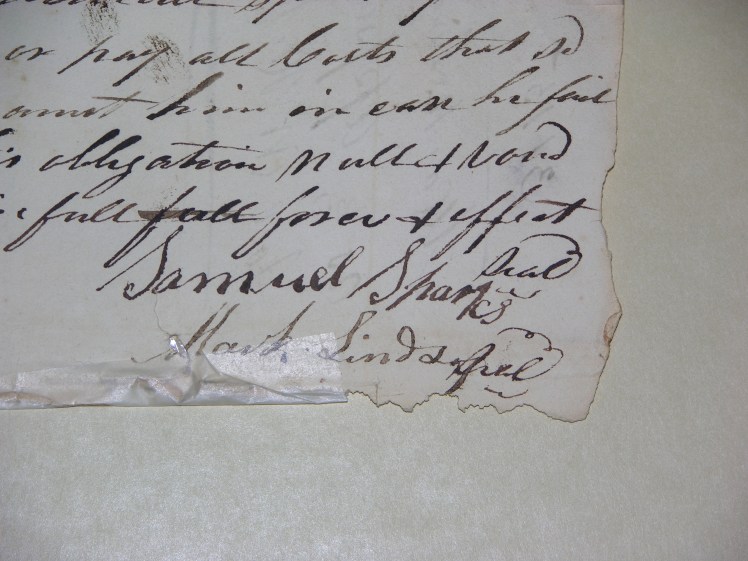 or pay all Costs that s
him in case he fail
obligation null & void
full full force & effect
Samuel Sparks seal
Mark Lindsey seal